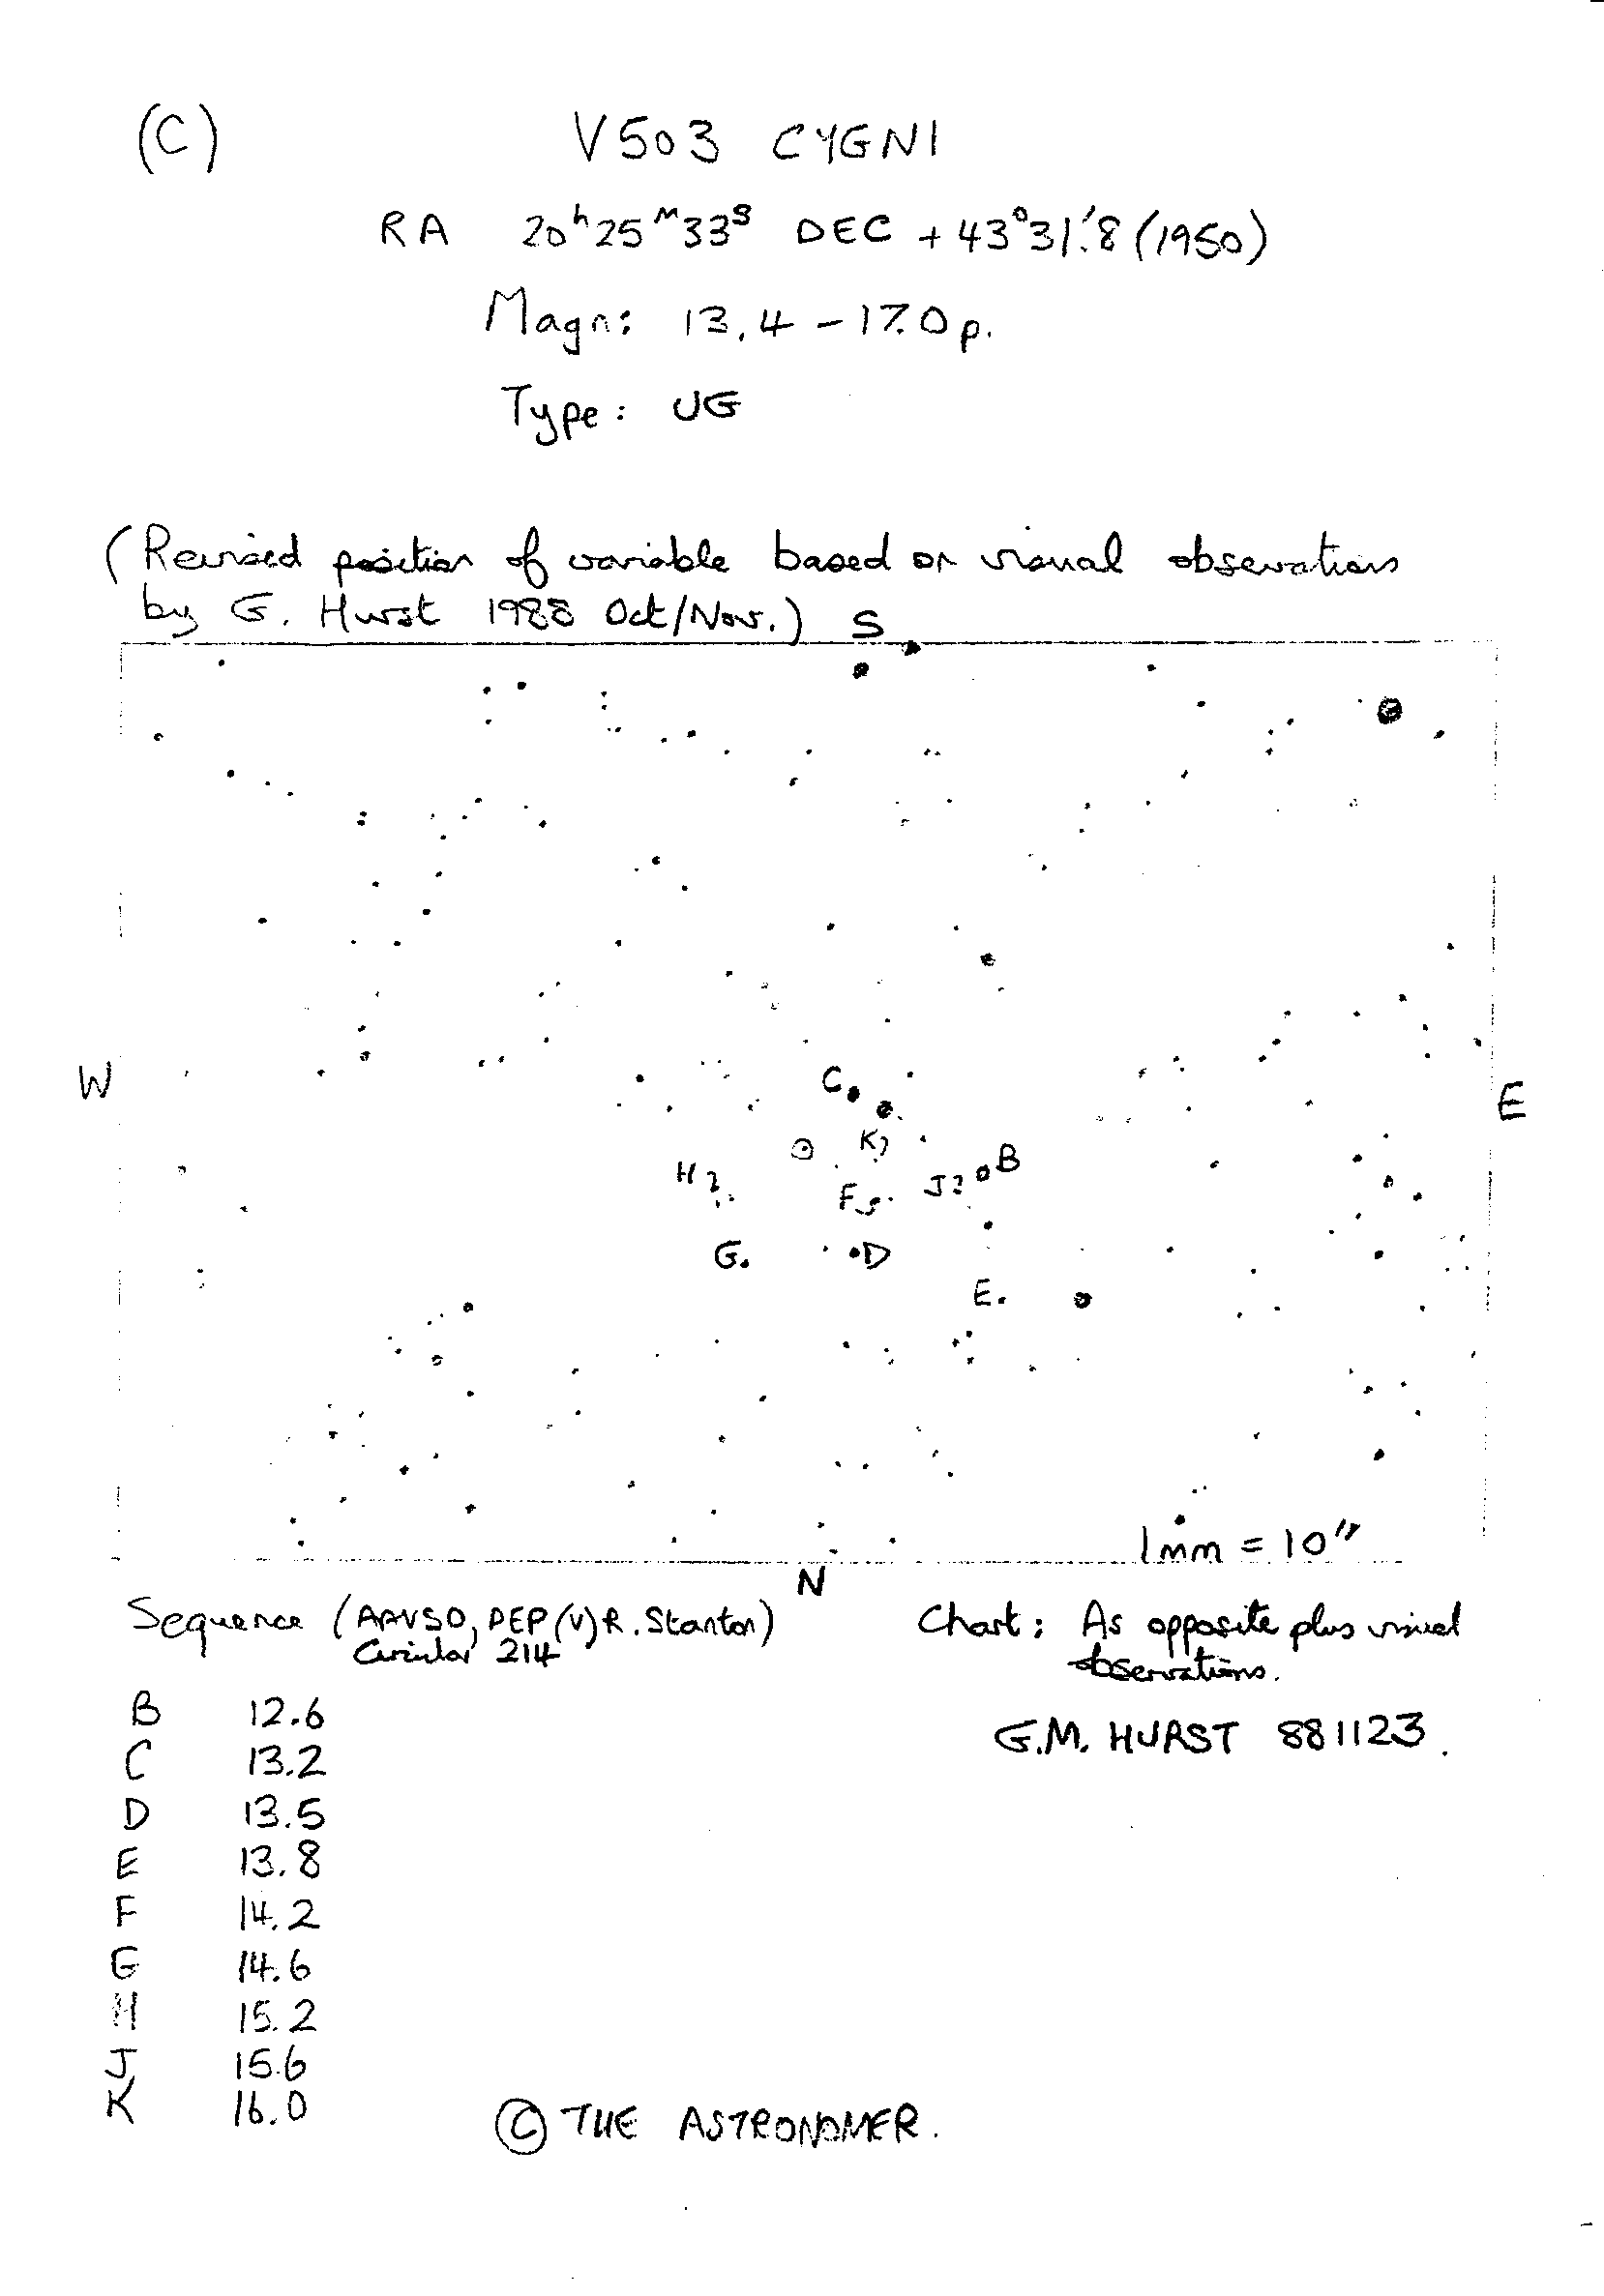 (C) V503 CYGNI
RA 20ʰ25ᵐ33ˢ DEC +43°31.'8 (1950)
Magn: 13.4 - 17.0p.
Type: UG
(Revised position of variable based on visual observations
by G. Hurst 1988 Oct/Nov.)
S
W
C
E
K
B
H
J
F
G
D
E
1mm = 10"
N
Sequence (AAVSO, PEP(V) R. Stanton)
Circular 214
Chart: As opposite plus visual
observations.
B 12.6
C 13.2
D 13.5
E 13.8
F 14.2
G 14.6
H 15.2
J 15.6
K 16.0
G.M. HURST 881123.
© THE ASTRONOMER.